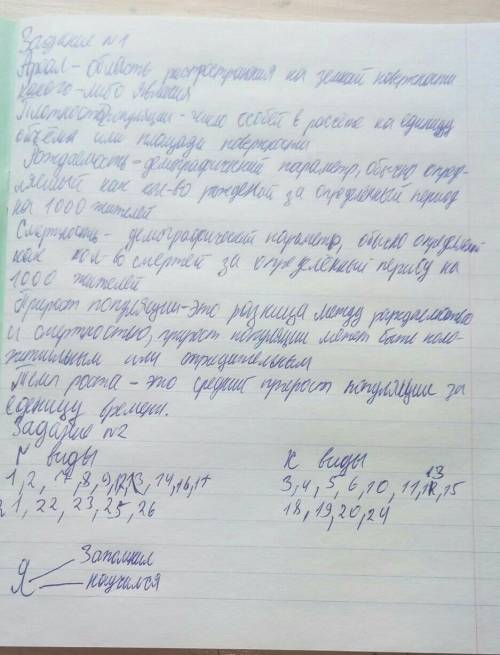 Задание №1
Ареал - область распространия на земной поверхности
какого-либо явления
Плотность популяции - число особей в рассете на единицу
объёма или площади поверхности
Рождаемость - демографический параметр, обычно опред-
ляемый как кол-во рождений за определённый период
на 1000 жителей
Смертность - демографический параметр, обычно определяемый
как кол-во смертей за определённый период на
1000 жителей
Прирост популяции - это разница между рождаемостью
и смертностью, прирост популяции может быть поло-
жительным или отрицательным
Темп роста - это средний прирост популяции за
еденицу времени.
Задание №2
r виды K виды
1, 2, 7, 8, 9, 12, 13, 14, 16, 17 3, 4, 5, 6, 10, 11, 13, 15
21, 22, 23, 25, 26 18, 19, 20, 24
Запомнил
Я
научился